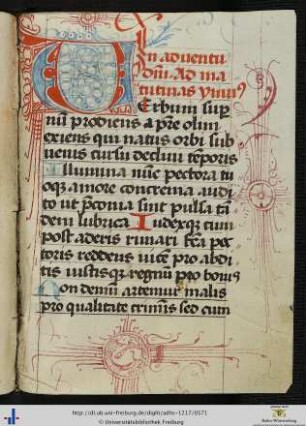 In adventu
dm̄. Ad ma
tutinas ymnꝰ
Verbum sup̄
nū prodiens a p̄re olim
exiens qui natus orbi sub
uenis cursu decliui tēporis
Illumina nūc pectora tu
oqꝫ amore concrema audi
to ut p̄conia sint pulsa tā
dem lubrica Iudexqꝫ cum
post aderis rimari fc̄a pec
toris reddens uicē pro abdi
tis iustisqꝫ regnū pro bonis
Non demū artemur malis
pro qualitate crimīs sed cum
http://dl.ub.uni-freiburg.de/diglit/adhs-1217/0571
© Universitätsbibliothek Freiburg
Baden-Württemberg